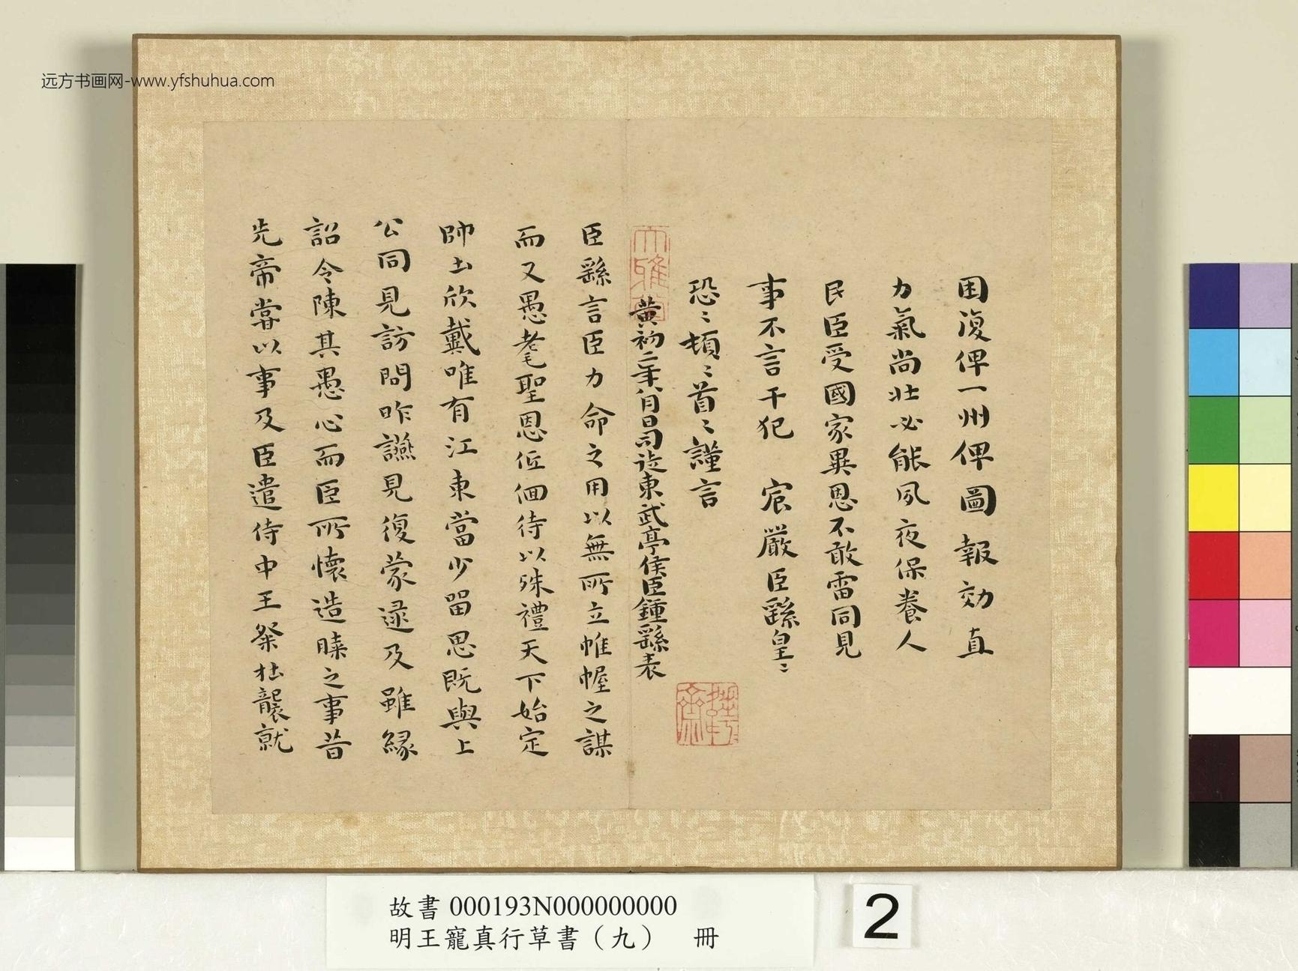 远方书画网-www.yfshuhua.com
困復俾一州俾圖報効直
力氣尚壯必能夙夜保養人
民臣受國家異恩不敢雷同見
事不言干犯 宸嚴臣繇皇〻
恐〻頓〻首〻謹言
黄初二年八月日司徒東武亭侯臣鍾繇表
臣繇言臣力命之用以無所立帷幄之謀
而又愚耄聖恩低佪待以殊禮天下始定
帥土欣戴唯有江東當少留思既與上
公同見訪問昨讌見復蒙逮及雖緣
詔令陳其愚心而臣所懷造膝之事昔
先帝嘗以事及臣遣侍中王粲杜襲就
故書 000193N000000000
明王寵真行草書（九） 冊
2